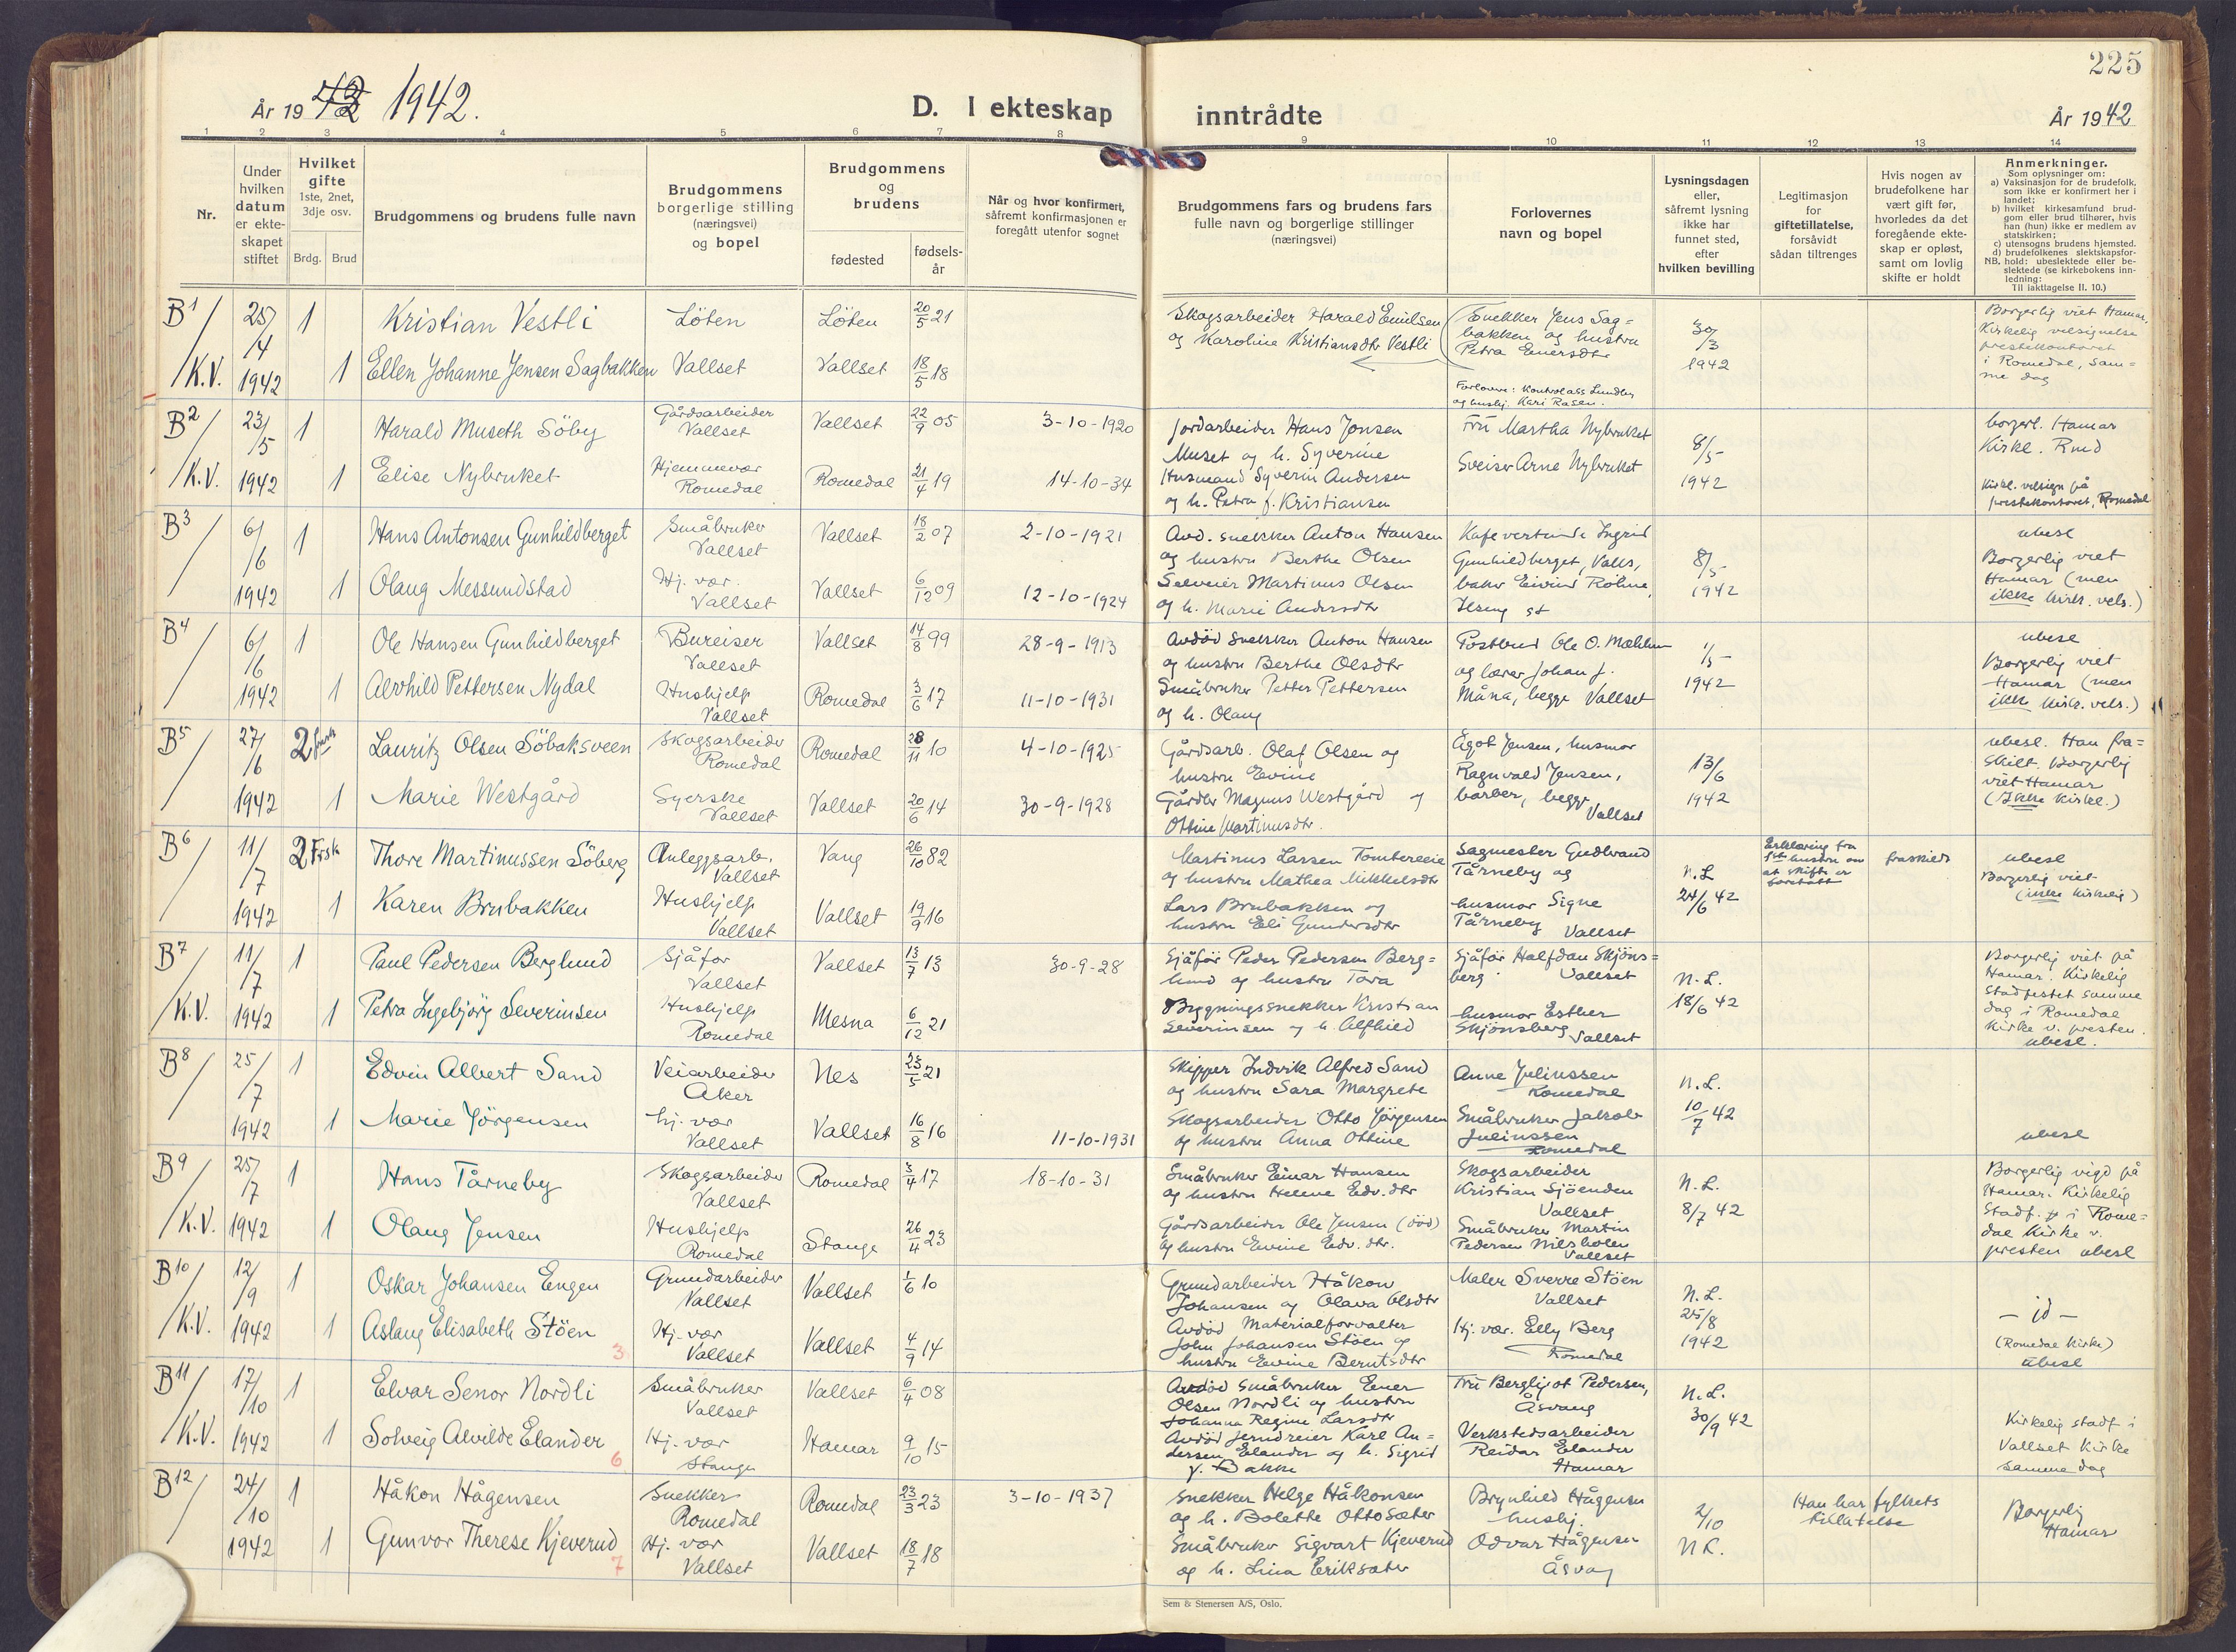 225
År 19 42 1942.
D. I ekteskap
inntrådte
År 1942
1 2 3 4 5 6 7 8 9 10 11 12 13 14
Nr.
Under hvilken datum er ekteskapet stiftet
Hvilket gifte 1ste, 2net, 3dje osv.
Brdg. Brud
Brudgommens og brudens fulle navn
Brudgommens borgerlige stilling (næringsvei) og bopel
Brudgommens og brudens
fødested
fødselsår
Når og hvor konfirmert, såfremt konfirmasjonen er foregått utenfor sognet
Brudgommens fars og brudens fars fulle navn og borgerlige stillinger (næringsvei)
Forlovernes navn og bopel
Lysningsdagen eller, såfremt lysning ikke har funnet sted, efter hvilken bevilling
Legitimasjon for giftetillatelse, forsåvidt sådan tiltrenges
Hvis nogen av brudefolkene har vært gift før, hvorledes da det foregående ekteskap er opløst, samt om lovlig skifte er holdt
Anmerkninger.
Som oplysninger om:
a) Vaksinasjon for de brudefolk. som ikke er konfirmert her i landet;
b) hvilket kirkesamfund brudgom eller brud tilhører, hvis han (hun) ikke er medlem av statskirken;
c) utensogns brudens hjemsted.
d) brudefolkenes slektskapsforhold: ubeslektede eller beslektede (se kirkebokens innledning:
NB.
Til iakttagelse II. 10.)
B1 25/4 1 Kristian Vestli Löten Löten 20/5 21
Skogsarbeider Harald Emilsen
og Karoline Kristiansdtr Vestli
Snekker Jens Sag=
bakken og hustru
Petra Emersdtr
30/3
1942
Borgerlig viet Hamar,
Kirkelig velsignelse
prestekontoret
i Romedal, sam=
me dag
K.V. 1942 1 Ellen Johanne Jensen Sagbakken Vallset Vallset 18/5 18
Forlovere: Kontrolass Lundby
og hushj. Kari Rasen.
B2 23/5 1 Harald Museth Söby Gårdsarbeider Vallset Vallset 22/9 05 3-10-1920
Jordarbeider Hans Jonsen
Muset og h. Syverine
Fru Martha Nybruket
8/5
1942
borgerl. Hamar
Kirkl. Rmd
K.V. 1942 1 Elise Nybruket Hjemmevær Romedal Romedal 21/4 19 14-10-34
Husmand Syverin Andersen
og h. Petra f. Kristiansen
Sveiser Arne Nybruket
Kirkl. velsign på
prestekontoret, Romedal
B3 6/6 1 Hans Antonsen Gunhildberget Småbruker Vallset Vallset 18/2 07 2-10-1921
Avd. snekker Anton Hansen
og hustru Berthe Olsen
Kafevertinde Ingrid
Gunhildberget, Valls,
8/5
1942
ubesl
Borgerlig viet
Hamar (men
ikke kirk. vels.)
1942 1 Olaug Messundstad Hj. vær. Vallset Vallset 6/12 09 12-10-1924
Selveier Martinus Olsen
og h. Marie Andersdtr
baker Eivind Rohne,
Ilseng st
B4 6/6 1 Ole Hansen Gunhildberget Bureiser Vallset Vallset 14/8 99 28-9-1913
Avdöd snekker Anton Hansen
og hustru Berthe Olsdtr
Postbud Ole O. Mælum
og lærer Johan J.
1/5
1942
ubesl
Borgerlig viet
Hamar (men
ikke kirk. vels.)
1942 1 Alvhild Pettersen Nydal Hushjelp Vallset Romedal 3/6 17 11-10-1931
Småbruker Petter Pettersen
og h. Olaug
Måna, begge Vallset
B5 27/6 2 frask Lauritz Olsen Söbaksveen Skogsarbeider Romedal Romedal 28/11 10 4-10-1925
Gårdsarb. Olaf Olsen og
hustru Evine
Ågot Jensen, husmor
Ragnvald Jensen,
13/6
1942
ubesl. Han fra=
skilt. Borgerlig
viet Hamar
(Ikke kirkl.)
1942 1 Marie Westgård Syerske Vallset Vallset 20/6 14 30-9-1928
Gårdbr Magnus Westgård og
Ottine Martinusdtr.
barber, begge
Vallset
B6 11/7 2 Frsk Thore Martinussen Söberg Anleggsarb. Vallset Vang 26/10 82
Martinus Larsen Tombereie
og hustru Mathea Mikkelsdtr
Sagmester Gudbrand
Tårneby og
N.L
24/6 42
Erklæring fra
1ste hustru om
at skifte er
foretatt
fraskilt
ubesl
Borgerlig viet
(ikke kirkelig)
1942 1 Karen Brubakken Hushjelp Vallset Vallset 19/9 16
Lars Brubakken og
hustru Eli Gundersdtr
husmor Signe
Tårneby Vallset
B7 11/7 1 Paul Pedersen Berglund Sjåför Vallset Vallset 13/7 13 30-9-28
Sjåför Peder Pedersen Berg=
lund og hustru Tora
Sjåför Halfdan Skjöns=
berg Vallset
N.L.
18/6 42
Borgerlig viet på
Hamar. Kirkelig
stadfestet samme
dag i Romedal
Kirke v. presten.
ubesl.
K.V. 1942 1 Petra Ingebjörg Severinsen Hushjelp Romedal Mesna 6/12 21
Bygningssnekker Kristian
Severinsen og h. Alfhild
husmor Esther
Skjönsberg Vallset
B8 25/7 1 Edvin Albert Sand Veiarbeider Aker Nes 25/5 21
Skipper Indrik Alfred Sand
og hustru Sara Margrete
Anne Julinssen
Romedal
N.L.
10/7 42
1942 1 Marie Jörgensen hj. vær Vallset Vallset 16/8 16 11-10-1931
Skogsarbeider Otto Jörgensen
og hustru Anna Ottine
Småbruker Jakob
Julinssen
Romedal
ubesl
B9 25/7 1 Hans Tårneby Skogsarbeider Vallset Romedal 3/4 17 18-10-31
Småbruker Einar Hansen
og hustru Helene Edv.dtr
Skogsarbeider
Kristian Sjöenden
Vallset
N.L.
8/7 42
Borgerlig vigd på
Hamar. Kirkelig
Stadf. i Rome=
dal Kirke v.
presten ubesl
K.V. 1942 1 Olaug Jensen Hushjelp Romedal Stange 26/4 23
Gårdsarbeider Ole Jensen (död)
og hustru Evine Edv. dtr.
Småbruker Martin
Pedersen Nilsholen
Vallset
B10 12/9 1 Oskar Johansen Engen Grundarbeider Vallset Vallset 1/6 10
Grundarbeider Håkon
Johansen og Olava Olsdtr
Maler Sverre Stöen
Vallset
N.L.
25/8
1942
- id -
(Romedal Kirke)
ubesl
K.V. 1942 1 Aslaug Elisabeth Stöen 3 Hj. vær Vallset Vallset 4/9 14
Avdöd Materialforvalter
John Johansen Stöen og
hustru Evine Berntsdtr
Hj. vær. Elly Berg
Romedal
B11 17/10 1 Elvar Senor Nordli Småbruker Vallset Vallset 6/4 08
Avdöd Småbruker Ener
Olsen Nordli og hustru
Johanna Regine Larsdtr
Fru Bergljot Pedersen,
Åsvang
N.L.
30/9 42
Kirkelig stadf i
Vallset Kirke
samme dag
K.V. 1942 1 Solveig Alvilde Elander 6 Hj. vær Stange Hamar 9/10 15
Avdöd jerndreier Karl An=
dersen Elander og h. Sigrid
f. Bakke
Verkstedsarbeider
Reidar Elander
Hamar
B12 24/10 1 Håkon Hågensen Snekker Romedal Romedal 23/3 23 3-10-1937
Snekker Helge Håkonsen
og h. Bolette Ottosdtr
Brynhild Hågensen
hushj.
2/10
NL.
Han har fylkets
tillatelse
Borgerlig
Hamar
1942 1 Gunvor Therese Kjeverud 7 Hj. vær Vallset Vallset 18/7 18
Småbruker Sigvart Kjeverud
og h. Lina Eriksdtr
Odvar Hågensen
Åsvang
Sem & Stenersen A/S, Oslo.